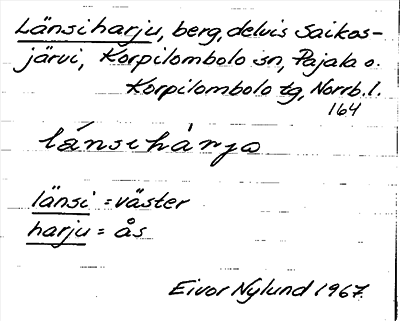 Länsiharju, berg, delvis Saikos-
järvi, Korpilombolo sn, Pajala o.
Korpilombolo tg, Norrb. l.
164
länsihärjo
länsi = väster
harju = ås
Eivor Nylund 1967.